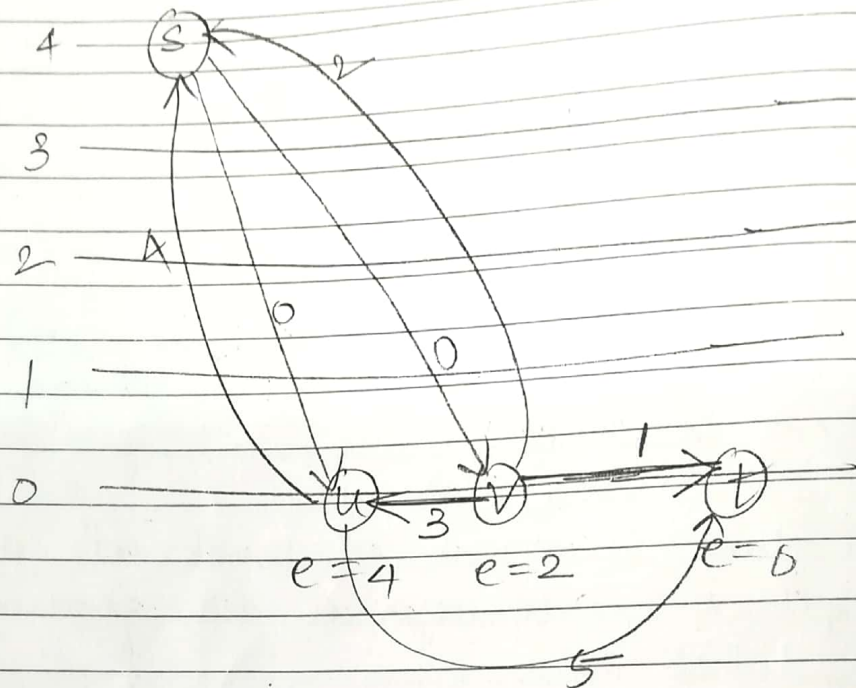 4 S
2
3
2 4
0
0
1
1
0 u v t
3
e=4 e=2 e=0
5